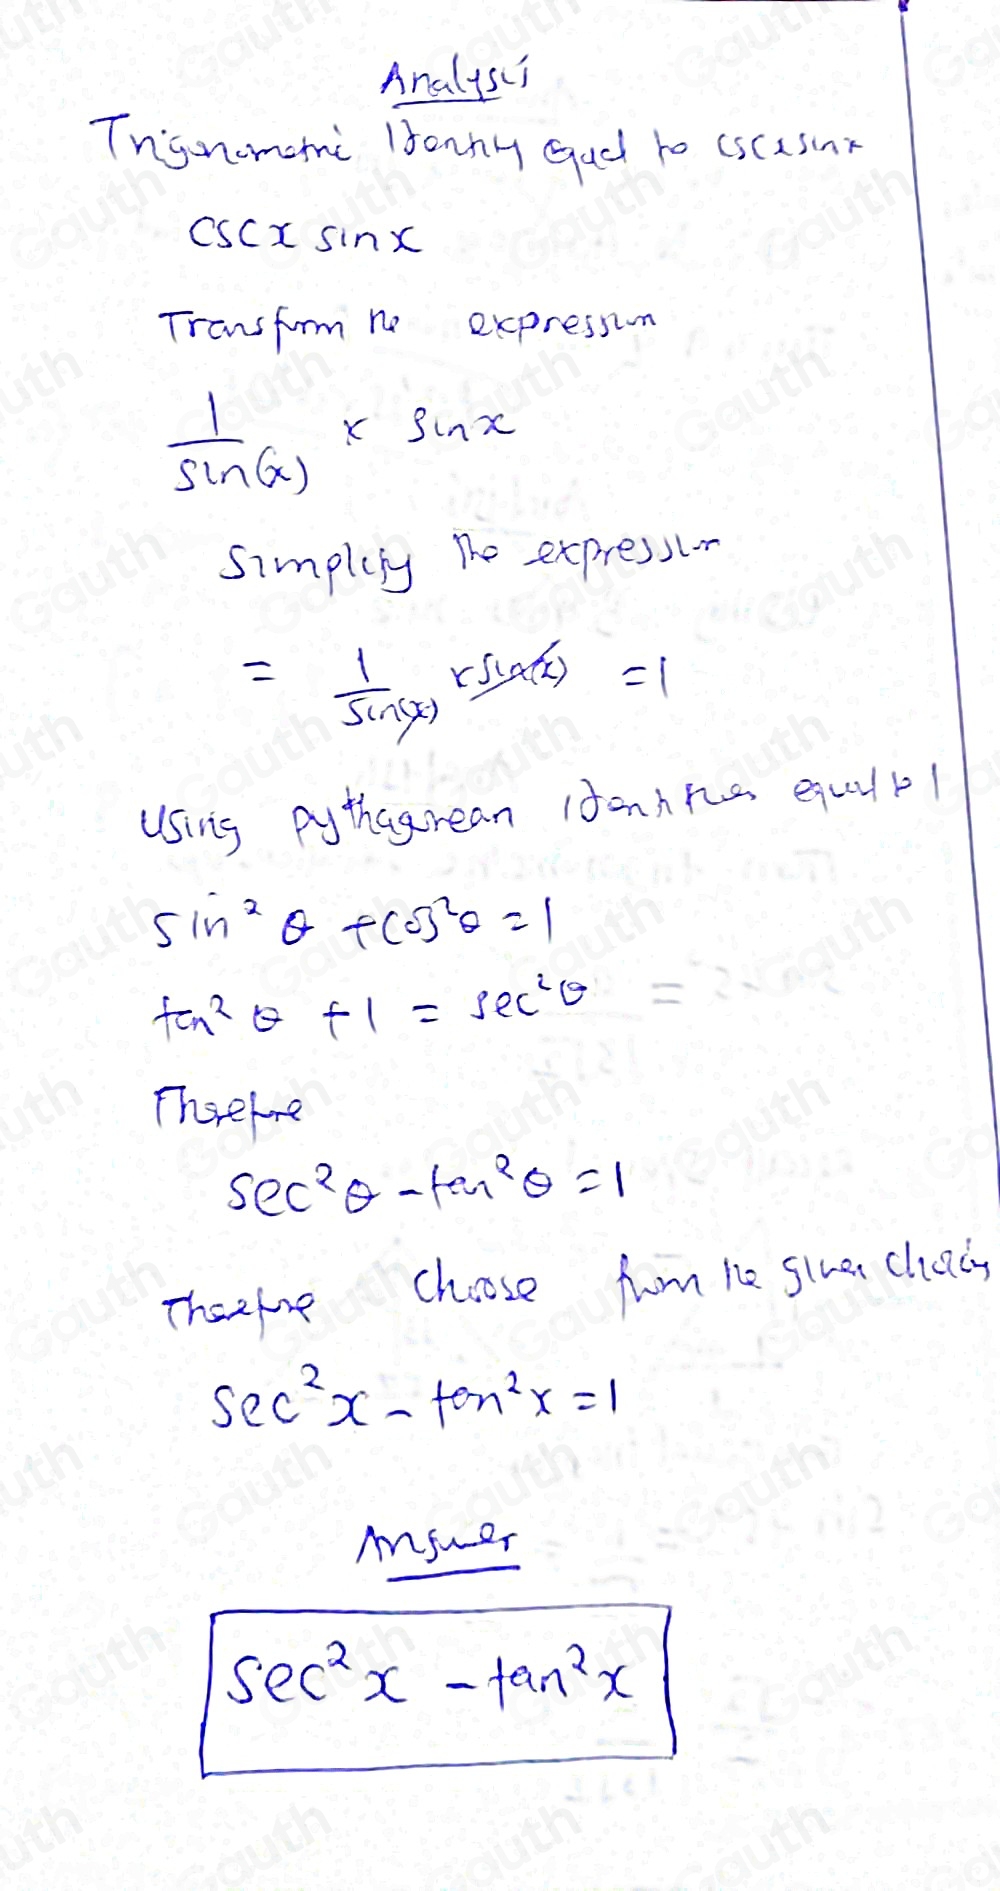 Analysis
Trigonometric Identity equal to cscxsinx
cscx sinx
Transform the expression
1/sin(x) × sinx
Simplify the expression
= 1/sin(x) × sin(x) = 1
Using pythagorean identities equal to 1
sin²θ + cos²θ = 1
tan²θ + 1 = sec²θ
Therefore
sec²θ - tan²θ = 1
Therefore choose from the given choices
sec²x - tan²x = 1
Answer
sec²x - tan²x